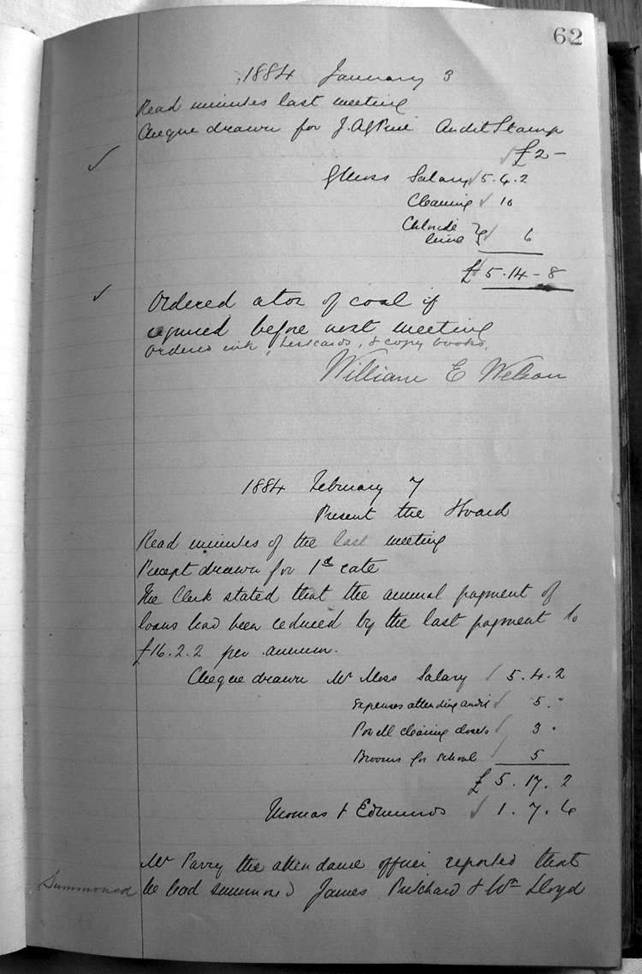 62
1884 January 3
Read minutes last meeting
Cheque drawn for J. Audit Stamp
£2 –
G Moss Salary 5.4.2
Cleaning 10
Chloride
lime } 6
£ 5.14 – 8
Ordered a ton of coal if
required before next meeting
Ordered ink, & copy books.
William E Nelson
1884 February 7
Present the Board
Read minutes of the last meeting
Precept drawn for 1st rate
The Clerk stated that the annual payment of
loans had been reduced by the last payment to
£16.2.2 per annum.
Cheque drawn Mr Moss Salary 5.4.2
Expenses attending audit 5. "
Powell cleaning closets 3 "
Brooms for school 5
£ 5.17.2
Thomas & Edmunds 1.7.6
Mr Parry the attendance officer reported that
Summoned he had summoned James Pritchard & Wm Lloyd